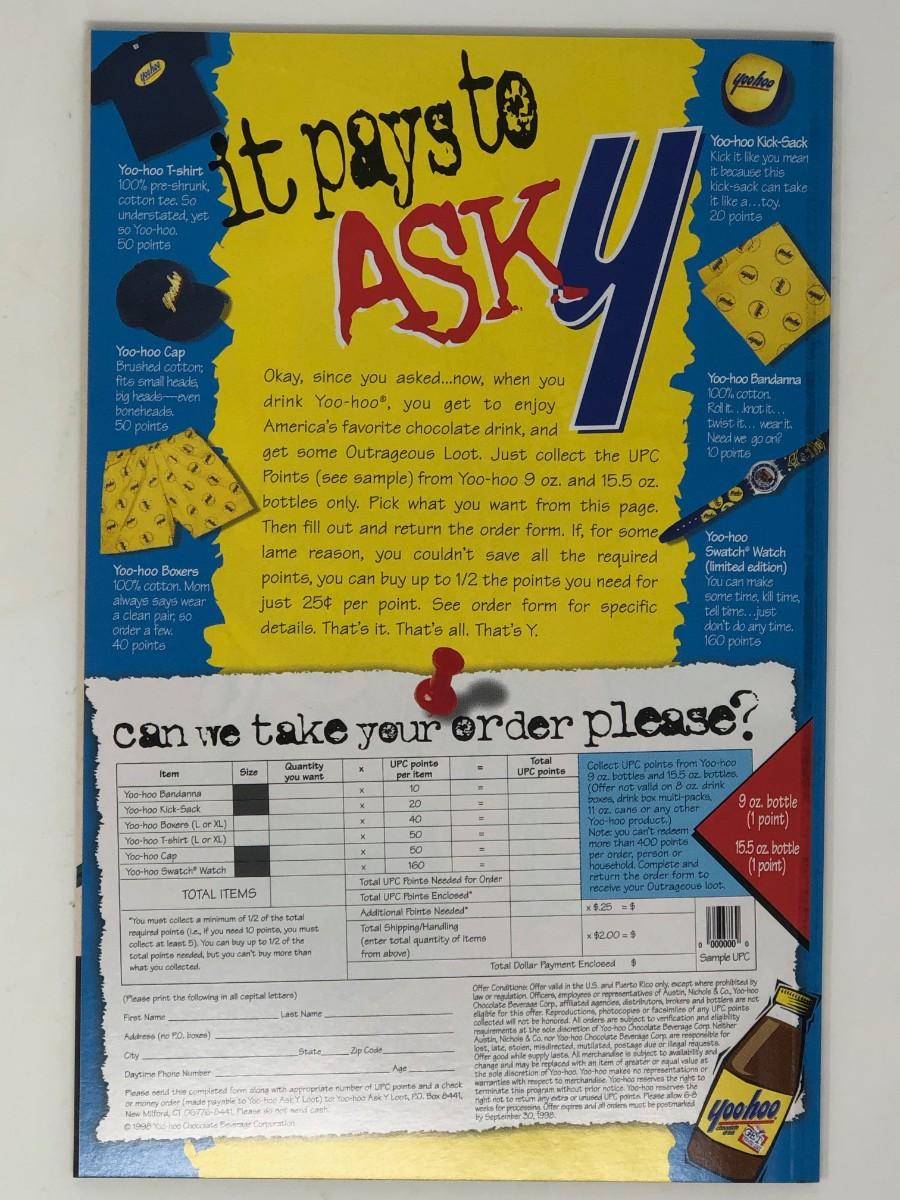 it pays to
ASK Y
yoohoo
Yoo-hoo T-shirt
100% pre-shrunk,
cotton tee. So
understated, yet
so Yoo-hoo.
50 points
yoohoo
Yoo-hoo Cap
Brushed cotton;
fits small heads,
big heads—even
boneheads.
50 points
Yoo-hoo Boxers
100% cotton. Mom
always says wear
a clean pair, so
order a few.
40 points
yoohoo
Yoo-hoo Kick-Sack
Kick it like you mean
it because this
kick-sack can take
it like a...toy.
20 points
Yoo-hoo Bandanna
100% cotton.
Roll it...knot it...
twist it... wear it.
Need we go on?
10 points
Yoo-hoo
Swatch® Watch
(limited edition)
You can make
some time, kill time,
tell time...just
don't do any time.
160 points
Okay, since you asked...now, when you
drink Yoo-hoo®, you get to enjoy
America's favorite chocolate drink, and
get some Outrageous Loot. Just collect the UPC
Points (see sample) from Yoo-hoo 9 oz. and 15.5 oz.
bottles only. Pick what you want from this page.
Then fill out and return the order form. If, for some
lame reason, you couldn't save all the required
points, you can buy up to 1/2 the points you need for
just 25¢ per point. See order form for specific
details. That's it. That's all. That's Y.
can we take your order please?
Item Size Quantity you want x UPC points per item = Total UPC points
Yoo-hoo Bandanna x 10 =
Yoo-hoo Kick-Sack x 20 =
Yoo-hoo Boxers (L or XL) x 40 =
Yoo-hoo T-shirt (L or XL) x 50 =
Yoo-hoo Cap x 50 =
Yoo-hoo Swatch® Watch x 160 =
TOTAL ITEMS
Total UPC Points Needed for Order
Total UPC Points Enclosed*
Additional Points Needed* x $.25 = $
Total Shipping/Handling
(enter total quantity of items
from above) x $2.00 = $
Total Dollar Payment Enclosed $
*You must collect a minimum of 1/2 of the total
required points (i.e., if you need 10 points, you must
collect at least 5). You can buy up to 1/2 of the
total points needed, but you can't buy more than
what you collected.
Collect UPC points from Yoo-hoo
9 oz. bottles and 15.5 oz. bottles.
(Offer not valid on 8 oz. drink
boxes, drink box multi-packs,
11 oz. cans or any other
Yoo-hoo product.)
Note: you can't redeem
more than 400 points
per order, person or
household. Complete and
return the order form to
receive your Outrageous loot.
9 oz. bottle
(1 point)
15.5 oz. bottle
(1 point)
0 00000 0
Sample UPC
(Please print the following in all capital letters)
First Name Last Name
Address (no P.O. boxes)
City State Zip Code
Daytime Phone Number Age
Please send this completed form along with appropriate number of UPC points and a check
or money order (made payable to Yoo-hoo Ask Y Loot) to: Yoo-hoo Ask Y Loot, P.O. Box 8441,
New Milford, CT 06776-8441. Please do not send cash.
© 1998 Yoo-hoo Chocolate Beverage Corporation
Offer Conditions: Offer valid in the U.S. and Puerto Rico only, except where prohibited by
law or regulation. Officers, employees or representatives of Austin, Nichols & Co., Yoo-hoo
Chocolate Beverage Corp., affiliated agencies, distributors, brokers and bottlers are not
eligible for this offer. Reproductions, photocopies or facsimiles of any UPC points
collected will not be honored. All orders are subject to verification and eligibility
requirements at the sole discretion of Yoo-hoo Chocolate Beverage Corp. Neither
Austin, Nichols & Co. nor Yoo-hoo Chocolate Beverage Corp. are responsible for
lost, late, stolen, misdirected, mutilated, postage due or illegal requests.
Offer good while supply lasts. All merchandise is subject to availability and
change and may be replaced with an item of greater or equal value at
the sole discretion of Yoo-hoo. Yoo-hoo makes no representations or
warranties with respect to merchandise. Yoo-hoo reserves the right to
terminate this program without prior notice. Yoo-hoo reserves the
right not to return any extra or unused UPC points. Please allow 6-8
weeks for processing. Offer expires and all orders must be postmarked
by September 30, 1998.
yoohoo
chocolate
drink